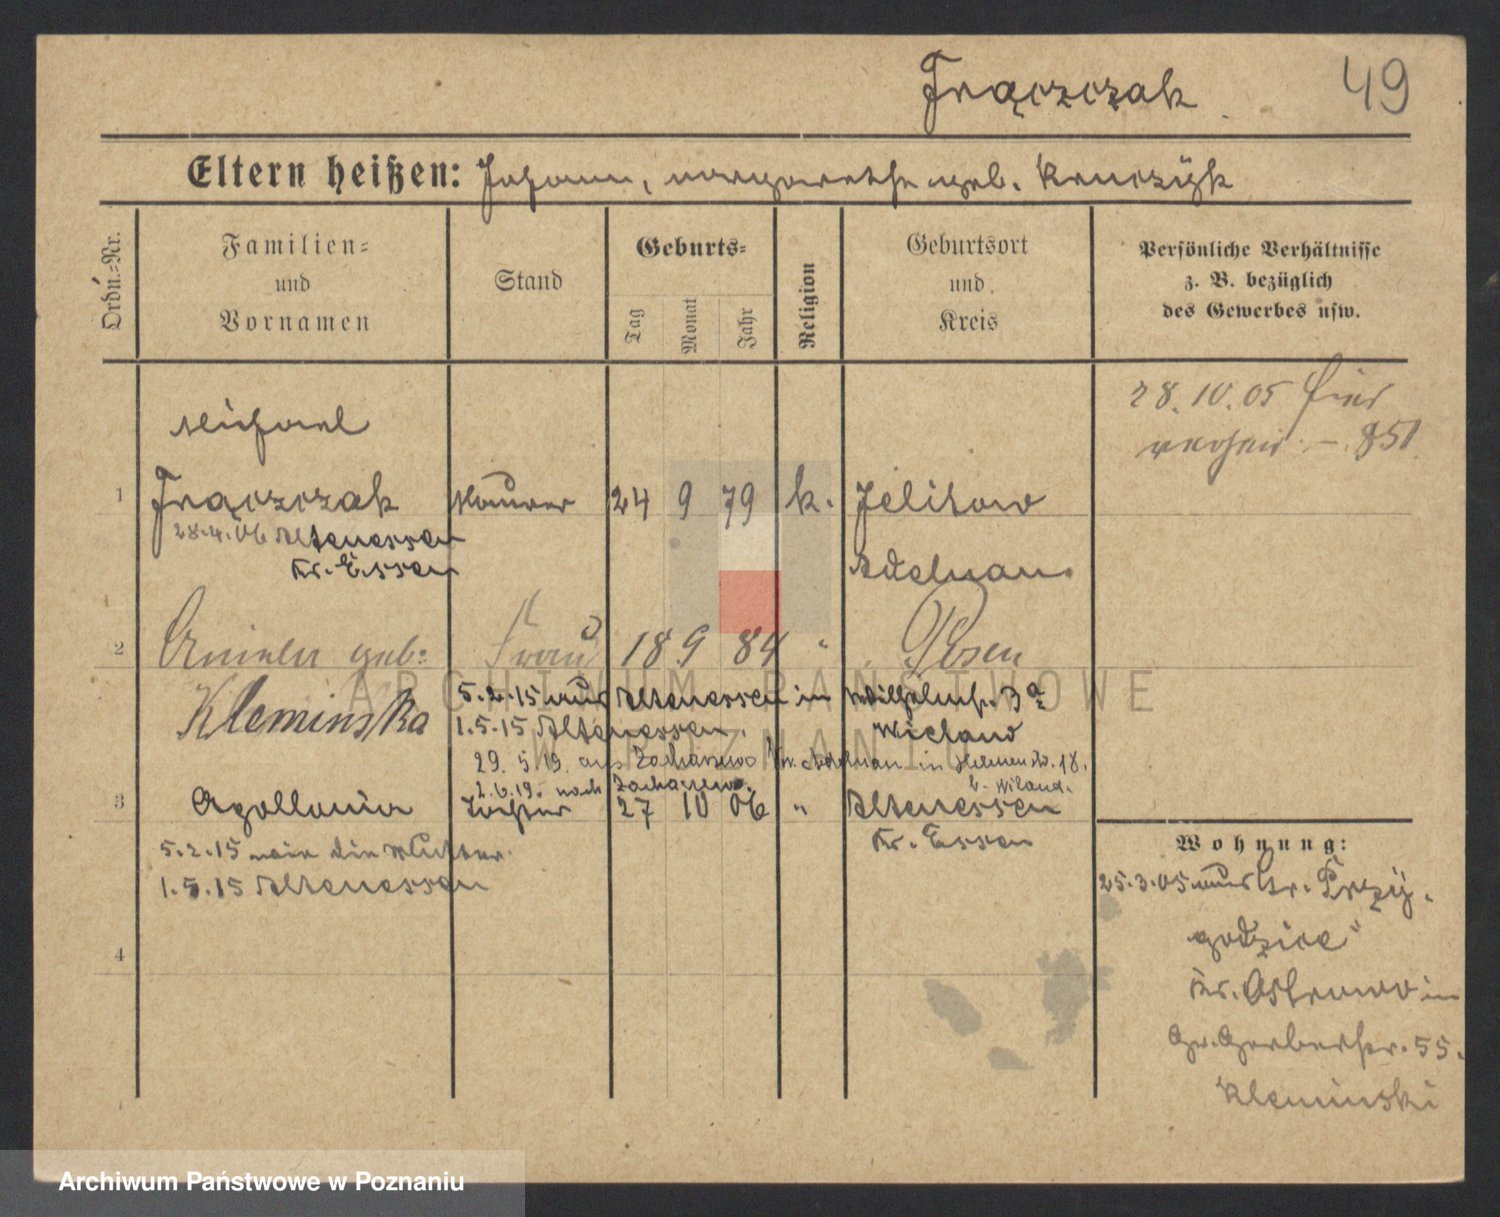 Frączczak 49
Eltern heißen: Johann, Margarethe geb.
Ordn.-Nr.
Familien-
und
Vornamen
Stand
Geburts-
Tag
Monat
Jahr
Religion
Geburtsort
und
Kreis
Persönliche Verhältnisse
z. B. bezüglich
des Gewerbes usw.
28.10.05 hier
851
Michael
1 Frączczak Maurer 24 9 79 k. Jelitow
28.4.06 Altenessen
Kr. Essen
Adelnau
2 Aniela geb: Frau 18 9 84 " Posen
Kleminska
5.2.15 aus Altenessen in Wilhelmstr. 3a
1.5.15 Altenessen. Wieland
29. 5. 19. aus Zacharzewo Kr. Adelnau in 18.
2.6.19. nach Zacharzewo. b. Wiland.
3 Apollonia Tochter 27 10 06 " Altenessen
Kr. Essen
5.2.15 wie die Mutter
1.5.15 Altenessen
4
Wohnung:
25.3.05 aus Gr. Przy-
godzice
Kr. Ostrowo in
Gr. Gerberstr. 55.
Kleminski
ARCHIWUM PAŃSTWOWE
W POZNANIU
Archiwum Państwowe w Poznaniu